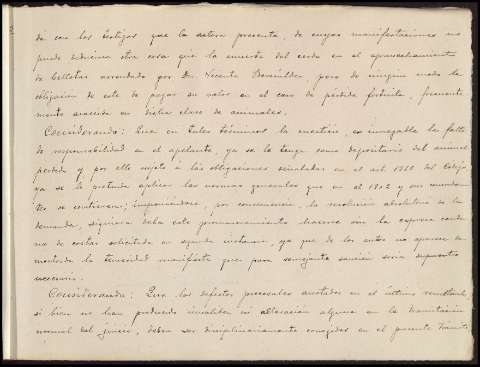 da con los testigos que la actora presenta, de cuyas manifestaciones no
puede deducirse otra cosa que la muerte del cerdo en el aprovechamiento
de bellotas arrendado por Dn. Vicente pero de ningún modo la
obligación de este de pagar su valor en el caso de pérdida fortuita, frecuente
mente acaecida en dicha clase de animales.
Considerando: Que en tales términos la cuestión, es innegable la falta
de responsabilidad en el apelante, ya se le tenga como depositario del animal
perdido y por ello sujeto á las obligaciones señaladas en el art. del Código,
ya se le pretenda aplicar las normas generales que en el 1902 y sus concordan
tes se contienen; imponiéndose, por consecuencia, la resolución absolutoria de la
demanda, siquiera deba este pronunciamiento hacerse sin la expresa conde
na de costas solicitada en segunda instancia, ya que de los autos no aparece de
mostrada la temeridad manifiesta que para semejante sanción sería supuesto
necesario.
Considerando: Que los defectos procesales anotados en el último resultando,
si bien no han producido invalidez ni alteración alguna en la tramitación
normal del juicio, deben ser disciplinariamente corregidos en el presente trámite